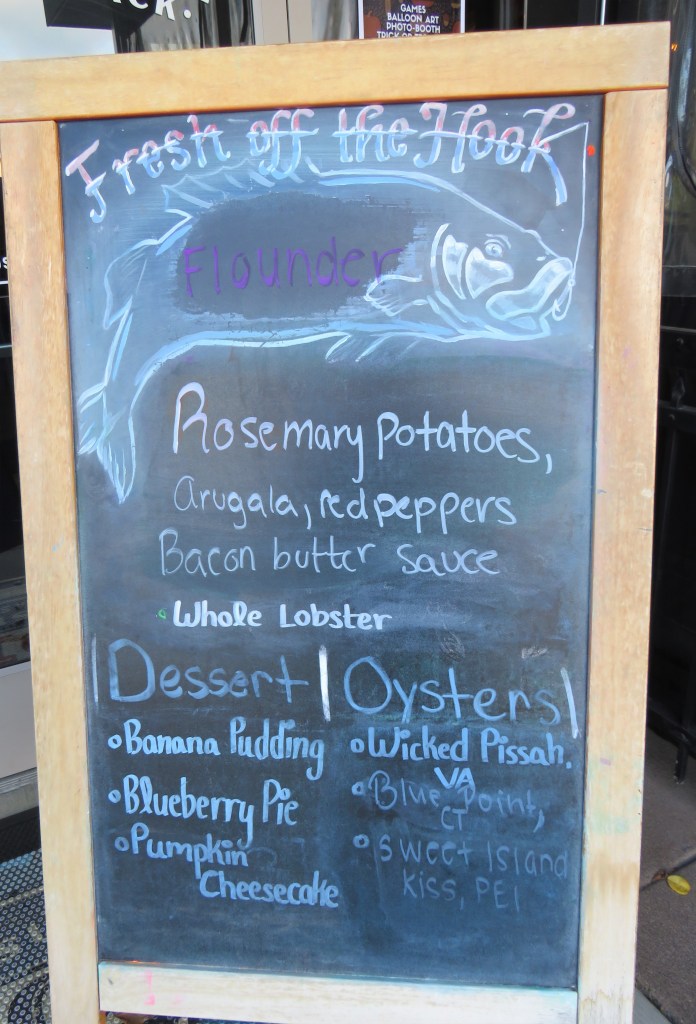 GAMES
BALLOON ART
PHOTO-BOOTH
Fresh off the Hook
Flounder
Rosemary potatoes,
Arugala, red peppers
Bacon butter sauce
Whole Lobster
Dessert
Banana Pudding
Blueberry Pie
Pumpkin
Cheesecake
Oysters
Wicked Pissah,
VA
Blue Point,
CT
Sweet Island
Kiss, PEI